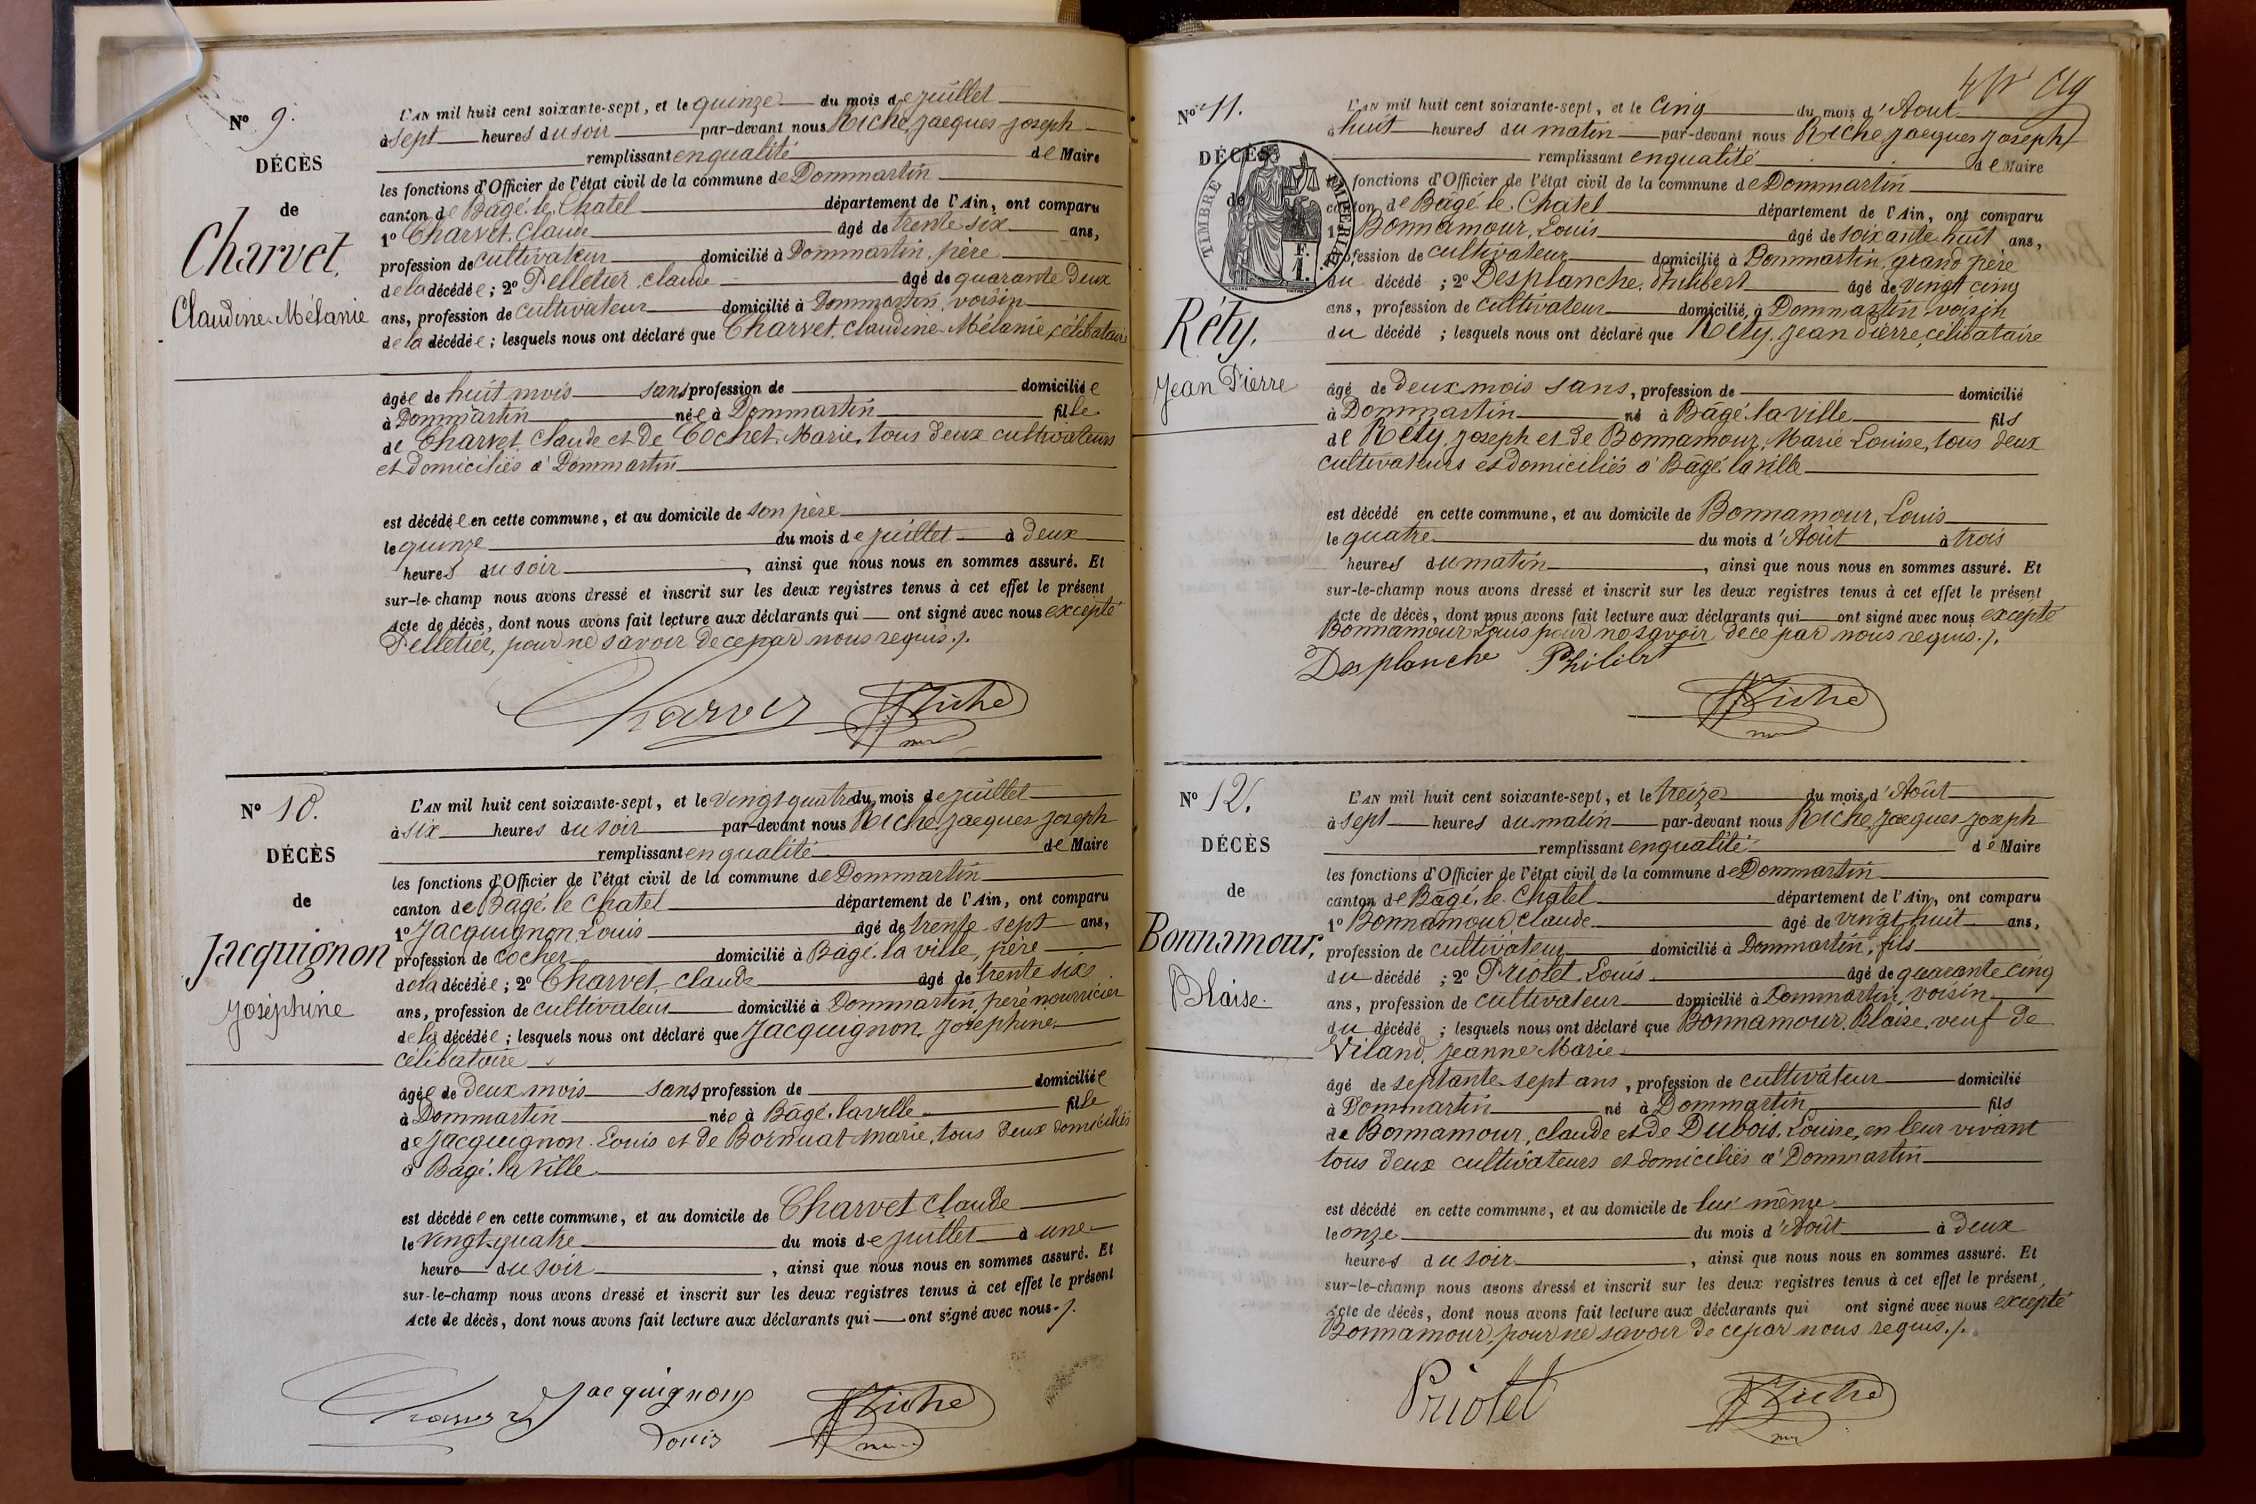 Nº 9.
DÉCÈS
de
Charvet,
Claudine Mélanie
L'AN mil huit cent soixante-sept, et le quinze du mois de juillet
à sept heures du soir par-devant nous Riche, Jacques Joseph
remplissant en qualité de Maire
les fonctions d'Officier de l'état civil de la commune de Dommartin
canton de Bâgé-le-Chatel département de l'Ain, ont comparu
1º Charvet, Claude âgé de trente-six ans,
profession de cultivateur domicilié à Dommartin, père
de la décédée ; 2º Pelletier, Claude âgé de quarante deux
ans, profession de cultivateur domicilié à Dommartin, voisin
de la décédée ; lesquels nous ont déclaré que Charvet, Claudine-Mélanie, célibataire
âgée de huit mois sans profession de domiciliée
à Dommartin née à Dommartin fille
de Charvet, Claude et de Cochet, Marie, tous deux cultivateurs
et domiciliés à Dommartin
est décédée en cette commune, et au domicile de son père
le quinze du mois de juillet à deux
heures du soir, ainsi que nous nous en sommes assuré. Et
sur-le-champ nous avons dressé et inscrit sur les deux registres tenus à cet effet le présent
Acte de décès, dont nous avons fait lecture aux déclarants qui ont signé avec nous excepté
Pelletier, pour ne savoir de ce par nous requis ./.
Charvet Riche
Nº 10.
DÉCÈS
de
Jacquignon
Joséphine
L'AN mil huit cent soixante-sept, et le vingt quatre du mois de juillet
à six heures du soir par-devant nous Riche, Jacques Joseph
remplissant en qualité de Maire
les fonctions d'Officier de l'état civil de la commune de Dommartin
canton de Bagé-le-Chatel département de l'Ain, ont comparu
1º Jacquignon, Louis âgé de trente-sept ans,
profession de cocher domicilié à Bâgé-la-ville, père
de la décédée ; 2º Charvet, Claude âgé de trente six
ans, profession de cultivateur domicilié à Dommartin, père nourricier
de la décédée ; lesquels nous ont déclaré que Jacquignon, Joséphine,
célibataire
âgée de deux mois sans profession de domiciliée
à Dommartin née à Bâgé-la ville fille
de Jacquignon, Louis et de Bornuat Marie, tous deux domiciliés
à Bagé-la Ville
est décédée en cette commune, et au domicile de Charvet Claude
le vingt-quatre du mois de juillet à une
heure du soir, ainsi que nous nous en sommes assuré. Et
sur-le-champ nous avons dressé et inscrit sur les deux registres tenus à cet effet le présent
Acte de décès, dont nous avons fait lecture aux déclarants qui ont signé avec nous ./.
Charvet Jacquignon Riche
Louis
Nº 11.
DÉCÈS
de
TIMBRE IMPÉRIAL
Réty,
Jean Pierre
L'AN mil huit cent soixante-sept, et le cinq du mois d'Aout
à huit heures du matin par-devant nous Riche Jacques Joseph
remplissant en qualité de Maire
les fonctions d'Officier de l'état civil de la commune de Dommartin
canton de Bâgé le Chatel département de l'Ain, ont comparu
1º Bonnamour, Louis âgé de soixante huit ans,
profession de cultivateur domicilié à Dommartin, grand père
du décédé ; 2º Desplanche, Philibert âgé de vingt cinq
ans, profession de cultivateur domicilié à Dommartin, voisin
du décédé ; lesquels nous ont déclaré que Réty, Jean Pierre, célibataire
âgé de deux mois sans, profession de domicilié
à Dommartin né à Bâgé-la ville fils
de Réty, Joseph et de Bonnamour, Marie Louise, tous deux
cultivateurs et domiciliés à Bâgé la ville
est décédé en cette commune, et au domicile de Bonnamour, Louis
le quatre du mois d'Août à trois
heures du matin, ainsi que nous nous en sommes assuré. Et
sur-le-champ nous avons dressé et inscrit sur les deux registres tenus à cet effet le présent
Acte de décès, dont nous avons fait lecture aux déclarants qui ont signé avec nous excepté
Bonnamour Louis pour ne savoir de ce par nous requis ./.
Desplanche Philibert
Riche
Nº 12.
DÉCÈS
de
Bonnamour,
Blaise.
L'AN mil huit cent soixante-sept, et le treize du mois d'Août
à sept heures du matin par-devant nous Riche, Jacques Joseph
remplissant en qualité de Maire
les fonctions d'Officier de l'état civil de la commune de Dommartin
canton de Bâgé-le-Chatel département de l'Ain, ont comparu
1º Bonnamour, Claude âgé de vingt huit ans,
profession de cultivateur domicilié à Dommartin, fils
du décédé ; 2º Priolet, Louis âgé de quarante cinq
ans, profession de cultivateur domicilié à Dommartin, voisin
du décédé ; lesquels nous ont déclaré que Bonnamour, Blaise, veuf de
Viland, Jeanne Marie
âgé de septante-sept ans, profession de cultivateur domicilié
à Dommartin né à Dommartin fils
de Bonnamour, Claude et de Dubois, Louise, en leur vivant
tous deux cultivateurs et domiciliés à Dommartin
est décédé en cette commune, et au domicile de lui même
le onze du mois d'Août à deux
heures du soir, ainsi que nous nous en sommes assuré. Et
sur-le-champ nous avons dressé et inscrit sur les deux registres tenus à cet effet le présent
Acte de décès, dont nous avons fait lecture aux déclarants qui ont signé avec nous excepté
Bonnamour, pour ne savoir de ce par nous requis ./.
Priolet Riche